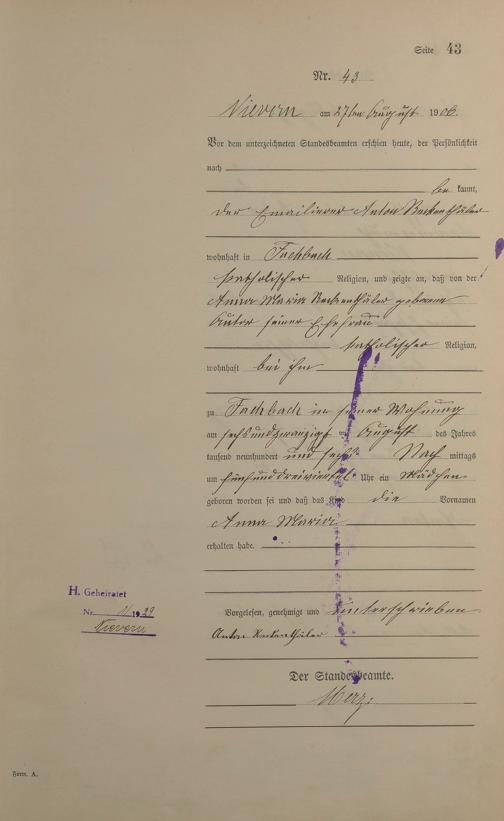 Seite 43
Nr. 43
Nievern am 27ten August 1906.
Vor dem unterzeichneten Standesbeamten erschien heute, der Persönlichkeit
nach
be kannt,
der Emailierer Anton
wohnhaft in Fachbach
katholischer Religion, und zeigte an, daß von der
Anna Maria geborene
seiner Ehefrau
katholischer Religion,
wohnhaft bei ihm
zu Fachbach in seiner Wohnung
am sechsundzwanzigsten August des Jahres
tausend neunhundert und sechs Nach mittags
um fünfunddreiviertel Uhr ein Mädchen
geboren worden sei und daß das Kind die Vornamen
Anna Maria
erhalten habe.
Vorgelesen, genehmigt und unterschrieben
Anton
Der Standesbeamte.
Merz.
H. Geheiratet
Nr. 11 1929
Nievern
Form. A.